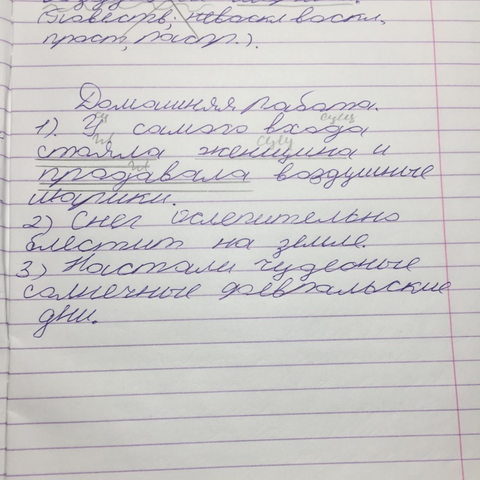 (Повеств; невоскл воскл,
прост, распр.).
Домашняя работа.
1). У самого входа
сущ
стояла женщина и
сущ
продавала воздушные
шарики.
2) Снег ослепительно
блестит на земле.
3) Настали чудесные
солнечные февральские
дни.